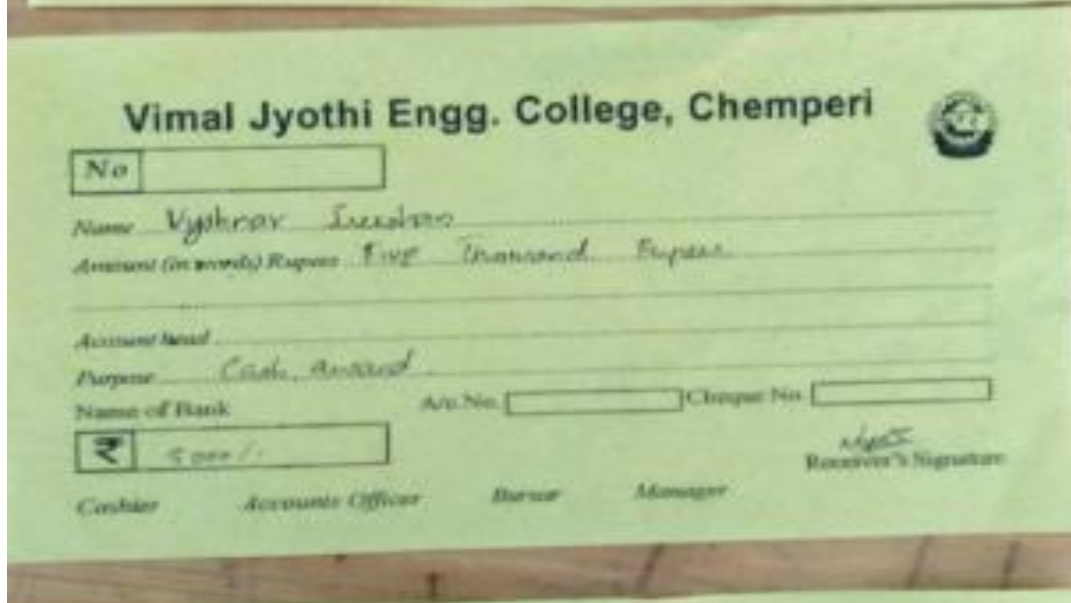 Vimal Jyothi Engg. College, Chemperi
No
Name Vyshnav
Amount (in words) Rupees Five Thousand Rupees
Account head
Purpose Cash award
Name of Bank A/c.No. Cheque No.
₹ 5000/-
Receiver's Signature
Cashier Accounts Officer Bursar Manager